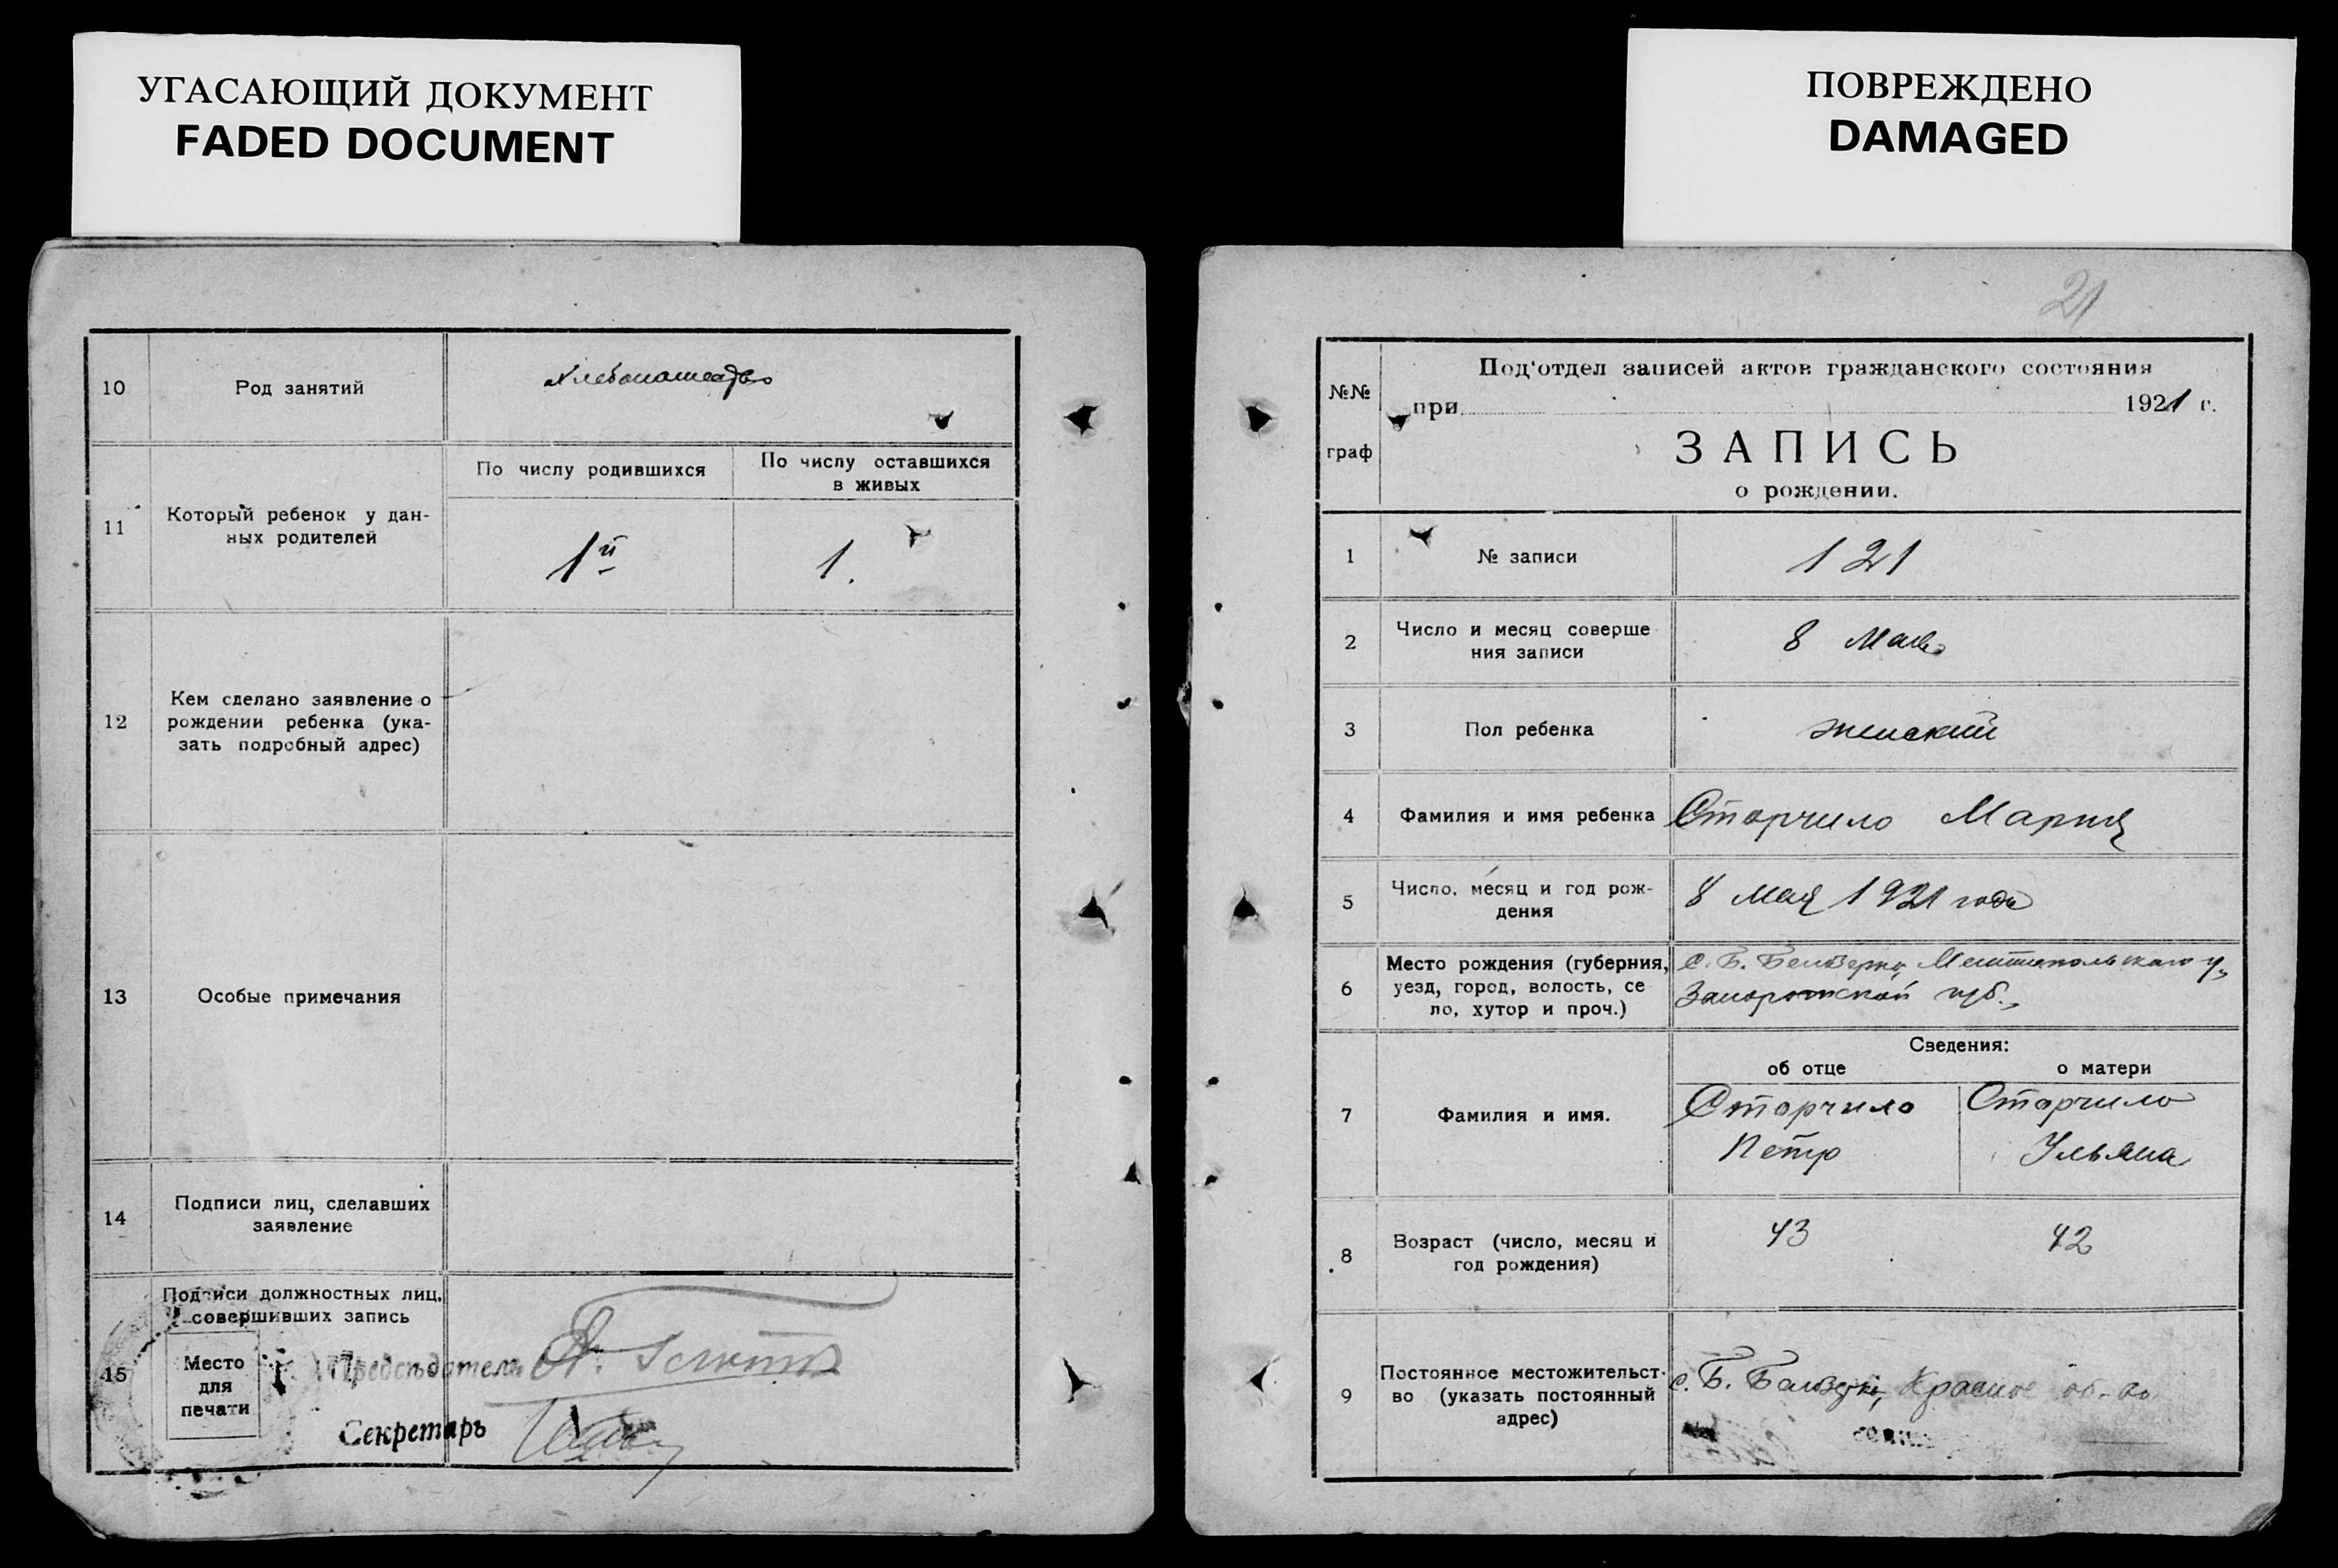 УГАСАЮЩИЙ ДОКУМЕНТ
FADED DOCUMENT
10
Род занятий
Хлебопашество
11
Который ребенок у дан-
ных родителей
По числу родившихся
По числу оставшихся
в живых
1й
1.
12
Кем сделано заявление о
рождении ребенка (ука-
зать подробный адрес)
13
Особые примечания
14
Подписи лиц, сделавших
заявление
15
Подписи должностных лиц,
совершивших запись
Место
для
печати
Председатель
Секретарь
ПОВРЕЖДЕНО
DAMAGED
21
№№
граф
Под'отдел записей актов гражданского состояния
при 1921 г.
ЗАПИСЬ
о рождении.
1
№ записи
121
2
Число и месяц соверше
ния записи
8 Мая
3
Пол ребенка
женский
4
Фамилия и имя ребенка
Сторчило Мария
5
Число, месяц и год рож-
дения
8 Мая 1921 года
6
Место рождения (губерния,
уезд, город, волость, се
ло, хутор и проч.)
с. Б. Белозерка, Мелитопольскаго у,
Запорожской губ.,
Сведения:
об отце
о матери
7
Фамилия и имя.
Сторчило
Петр
Сторчило
Ульяна
8
Возраст (число, месяц и
год рождения)
43
42
9
Постоянное местожительст-
во (указать постоянный
адрес)
с. Б. Белозерка, Красное об-во